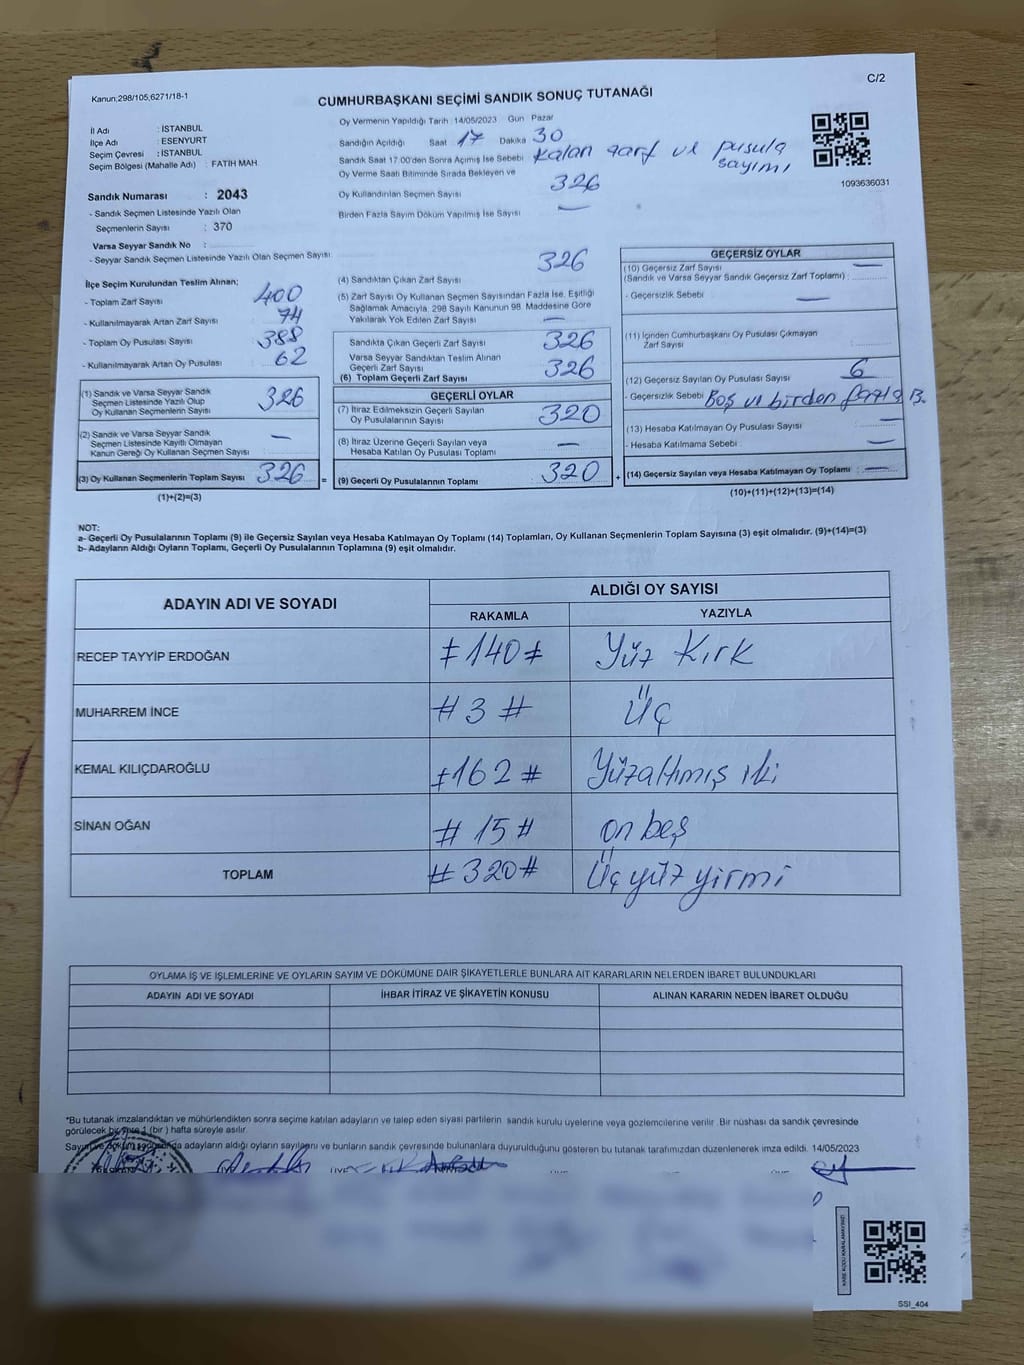 Kanun,298/105,6271/18-1
C/2
CUMHURBAŞKANI SEÇİMİ SANDIK SONUÇ TUTANAĞI
İl Adı : İSTANBUL
İlçe Adı : ESENYURT
Seçim Çevresi : İSTANBUL
Seçim Bölgesi (Mahalle Adı) : FATİH MAH.
Sandık Numarası : 2043
- Sandık Seçmen Listesinde Yazılı Olan
Seçmenlerin Sayısı : 370
Varsa Seyyar Sandık No :
- Seyyar Sandık Seçmen Listesinde Yazılı Olan Seçmen Sayısı:
Oy Vermenin Yapıldığı Tarih : 14/05/2023 Gün Pazar
Sandığın Açıldığı Saat 17 Dakika 30
Sandık Saat 17.00'den Sonra Açımış İse Sebebi Kalan zarf ve pusula
sayımı
Oy Verme Saati Bitiminde Sırada Bekleyen ve
Oy Kullandırılan Seçmen Sayısı 326
Birden Fazla Sayım Döküm Yapılmış İse Sayısı —
1093636031
İlçe Seçim Kurulundan Teslim Alınan;
- Toplam Zarf Sayısı 400
- Kullanılmayarak Artan Zarf Sayısı 74
- Toplam Oy Pusulası Sayısı 388
- Kullanılmayarak Artan Oy Pusulası 62
(1) Sandık ve Varsa Seyyar Sandık
Seçmen Listesinde Yazılı Olup
Oy Kullanan Seçmenlerin Sayısı 326
(2) Sandık ve Varsa Seyyar Sandık
Seçmen Listesinde Kayıtlı Olmayan
Kanun Gereği Oy Kullanan Seçmen Sayısı —
(3) Oy Kullanan Seçmenlerin Toplam Sayısı 326 =
(1)+(2)=(3)
(4) Sandıktan Çıkan Zarf Sayısı 326
(5) Zarf Sayısı Oy Kullanan Seçmen Sayısından Fazla İse, Eşitliği
Sağlamak Amacıyla, 298 Sayılı Kanunun 98. Maddesine Göre
Yakılarak Yok Edilen Zarf Sayısı —
Sandıkta Çıkan Geçerli Zarf Sayısı 326
Varsa Seyyar Sandıktan Teslim Alınan
Geçerli Zarf Sayısı
(6) Toplam Geçerli Zarf Sayısı 326
GEÇERLİ OYLAR
(7) İtiraz Edilmeksizin Geçerli Sayılan
Oy Pusulası Sayısı 320
(8) İtiraz Üzerine Geçerli Sayılan veya
Hesaba Katılan Oy Pusulası Toplamı —
(9) Geçerli Oy Pusulalarının Toplamı : 320 +
GEÇERSİZ OYLAR
(10) Geçersiz Zarf Sayısı —
(Sandık ve Varsa Seyyar Sandık Geçersiz Zarf Toplamı) :
- Geçersizlik Sebebi : —
(11) İçinden Cumhurbaşkanı Oy Pusulası Çıkmayan
Zarf Sayısı :
(12) Geçersiz Sayılan Oy Pusulası Sayısı : 6
- Geçersizlik Sebebi : Boş ve birden fazla B.
(13) Hesaba Katılmayan Oy Pusulası Sayısı :
- Hesaba Katılmama Sebebi : —
(14) Geçersiz Sayılan veya Hesaba Katılmayan Oy Toplamı : —
(10)+(11)+(12)+(13)=(14)
NOT:
a- Geçerli Oy Pusulalarının Toplamı (9) ile Geçersiz Sayılan veya Hesaba Katılmayan Oy Toplamı (14) Toplamları, Oy Kullanan Seçmenlerin Toplam Sayısına (3) eşit olmalıdır. (9)+(14)=(3)
b- Adayların Aldığı Oyların Toplamı, Geçerli Oy Pusulalarının Toplamına (9) eşit olmalıdır.
ADAYIN ADI VE SOYADI ALDIĞI OY SAYISI
RAKAMLA YAZIYLA
RECEP TAYYİP ERDOĞAN #140# Yüz Kırk
MUHARREM İNCE #3# Üç
KEMAL KILIÇDAROĞLU #162# Yüzaltmış iki
SİNAN OĞAN #15# on beş
TOPLAM #320# Üçyüz yirmi
OYLAMA İŞ VE İŞLEMLERİNE VE OYLARIN SAYIM VE DÖKÜMÜNE DAİR ŞİKAYETLERLE BUNLARA AİT KARARLARIN NELERDEN İBARET BULUNDUKLARI
ADAYIN ADI VE SOYADI İHBAR İTİRAZ VE ŞİKAYETİN KONUSU ALINAN KARARIN NEDEN İBARET OLDUĞU
*Bu tutanak imzalandıktan ve mühürlendikten sonra seçime katılan adayların ve talep eden siyasi partilerin sandık kurulu üyelerine veya gözlemcilerine verilir. Bir nüshası da sandık çevresinde
görülecek bir yere 1 (bir ) hafta süreyle asılır.
Sayım ve döküm sonucunda adayların aldığı oyların sayılarını ve bunların sandık çevresinde bulunanlara duyurulduğunu gösteren bu tutanak tarafımızdan düzenlenerek imza edildi. 14/05/2023
SSI_404